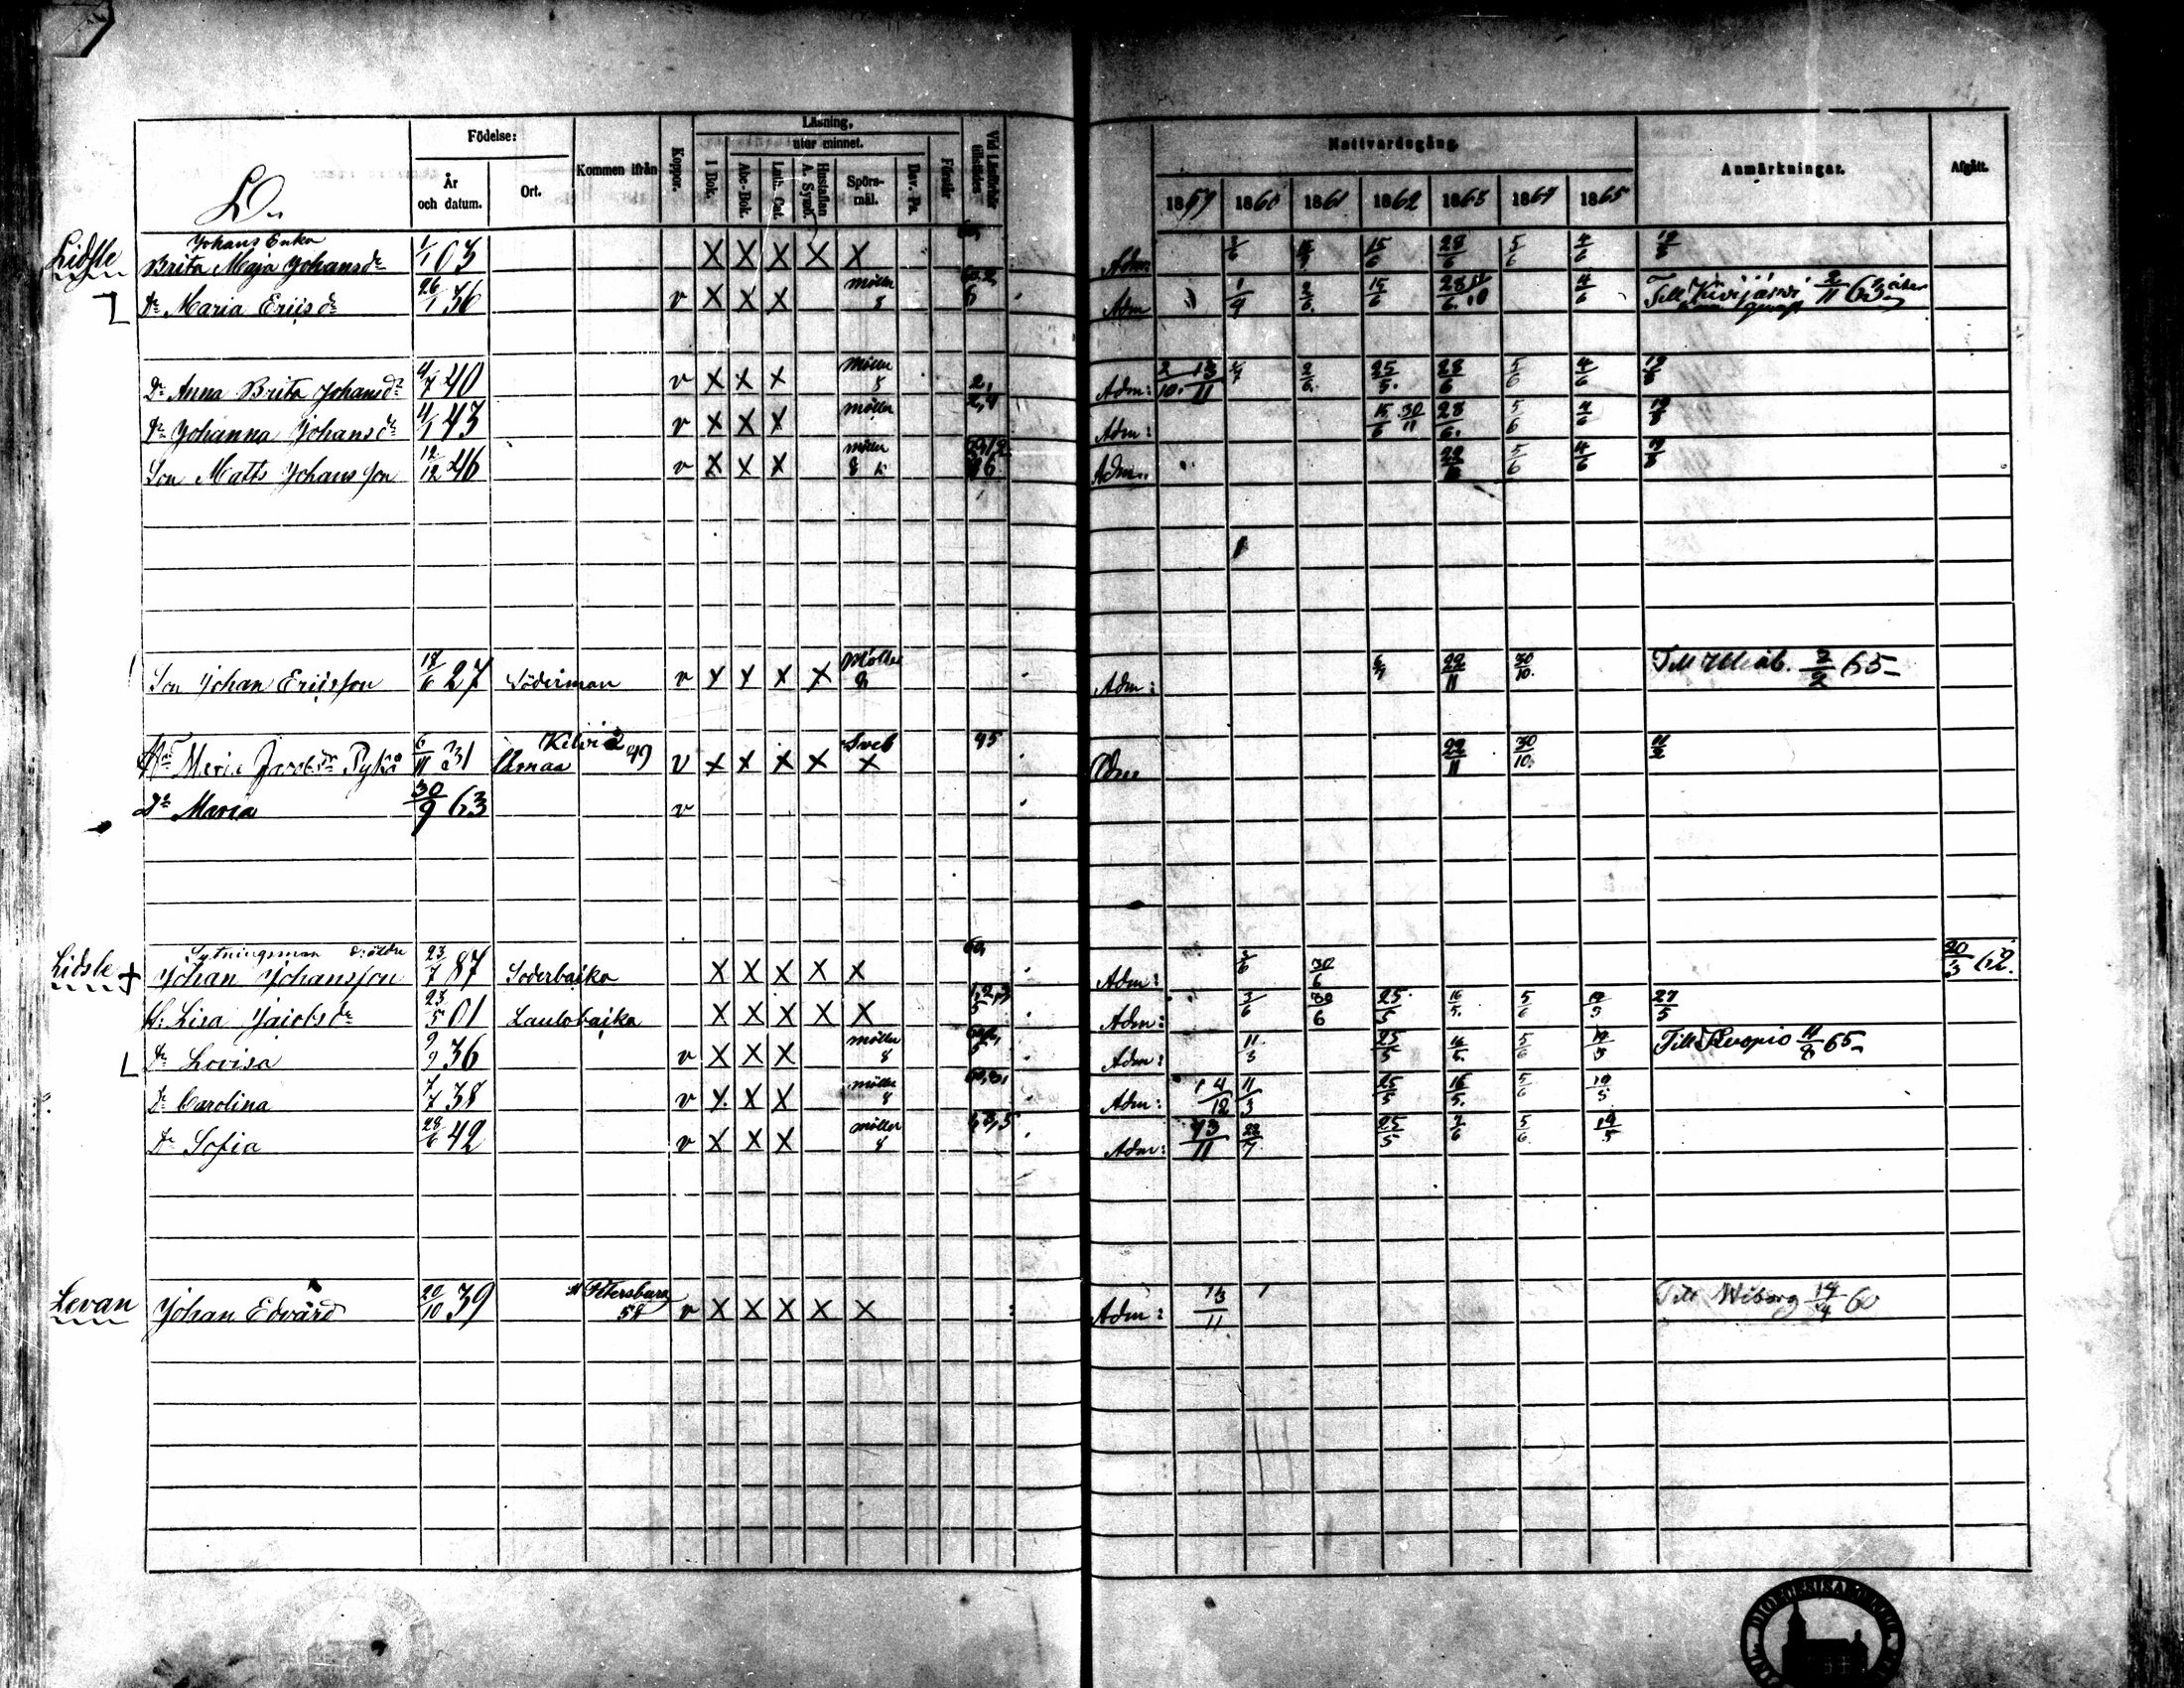 Födelse: Kommen ifrån Koppor. Läsning, Vid Läsförhör tillstädes Nattvardsgång. Anmärkningar. Afgått.
År och datum. Ort. I Bok. utur minnet. Förstår
Abc-Bok. Luth. Cat. Hustaflan A. Symb. Spörsmål. Dav. Ps.
L.. 1859 1860 1861 1862 1863 1864 1865
Johans Enka
Lidsle Brita Maja Johansdr 1/1 03 X X X X X Adm. 3/6 15/6 28/6 5/6 4/6 19/8
Dr Maria Ericsdr 26/1 36 v X X X möller 8 Adm 1/9 2/6. 15/6 28/6. 4/6 Till Kivijärvi 2/11 63
Dr Anna Brita Johansdr 4/7 40 v X X X Möller 8 2, Adm: 2/10. 13/11 2/6. 25/5. 28/6 5/6 4/6 19/8
Dr Johanna Johansdr 4/1 43 v X X X möller 2,4 Adm: 15/6 30/11 28/6. 5/6 4/6 19/8
Son Matts Johansson 12/12 46 v X X X möller 8 Adm.. 5/6 4/6 19/8
Son Johan Ericsson 18/6 27 Söderman v X X X X Möller 8 Adm: 22/11 30/10. Till Uleåb. 3/2 65
Maria Jacobsdr 6/11 31 Kelviå 49 v X X X X Sveb X 45 22/11 30/10. 11/2
Dr Maria 30/9 63 v
Sytningsman d: äldre
Lidsle + Johan Johansson 23/7 87 Söderbacka X X X X X 60, Adm: 3/6 30/6 30/3 62.
H: Lisa Jacobsdr 23/5 01 X X X X X 1,2,3 5 Adm: 3/6 30/6 25/5 16/5. 5/6 19/5 27/5
Dr Lovisa 9/9 36 v X X X möller 8 Adm: 11/3 25/5 16/5. 5/6 19/5 Till Kuopio 11/8 65
Dr Carolina 7/7 38 v X X X möller 8 Adm: 4/12 11/3 25/5 16/5. 5/6 19/5
Dr Sofia 28/6 42 v X X X möller 8 Adm: 13/11 22/7 25/5 7/6 5/6. 19/5
Levan Johan Edvard 20/10 39 St Petersburg 58 v X X X X X Adm: 13/11 Till Wiborg 14/4 60